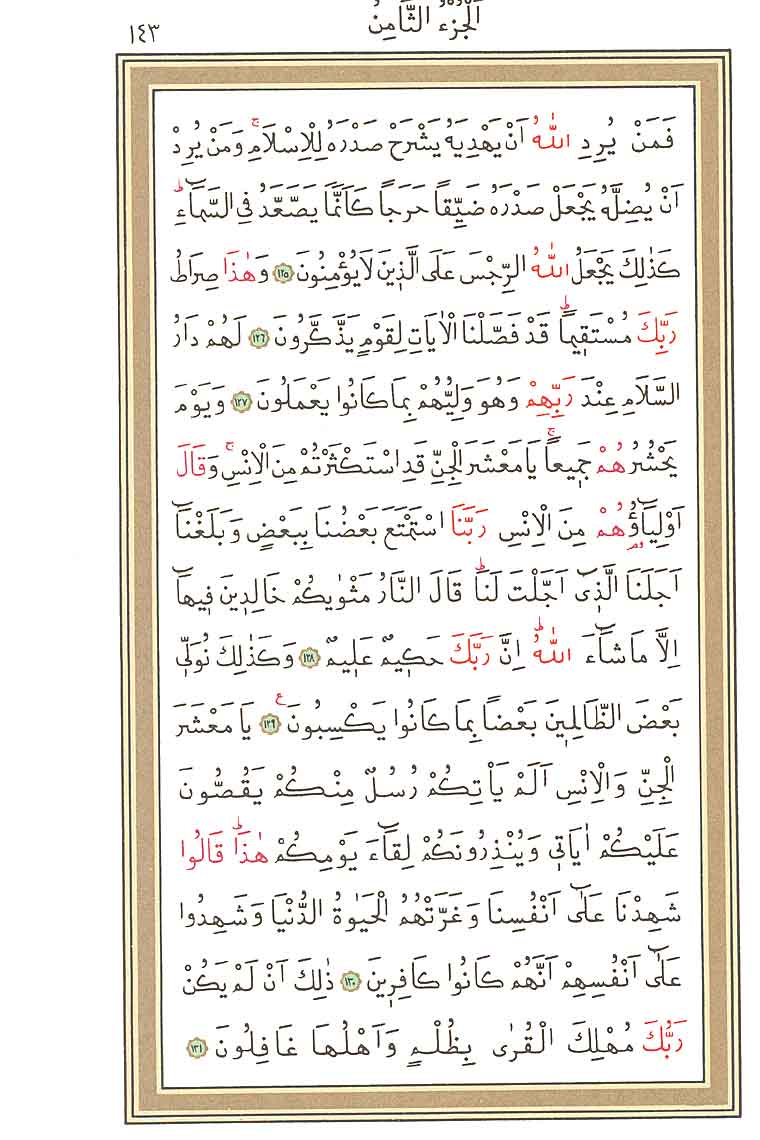 ١٤٣
اَلْجُزْءُ الثَّامِنُ
فَمَنْ يُرِدِ اللّٰهُ اَنْ يَهْدِيَهُ يَشْرَحْ صَدْرَهُ لِلْاِسْلَامِۚ وَمَنْ يُرِدْ
اَنْ يُضِلَّهُ يَجْعَلْ صَدْرَهُ ضَيِّقاً حَرَجاً كَاَنَّمَا يَصَّعَّدُ فِي السَّمَٓاءِۜ
كَذٰلِكَ يَجْعَلُ اللّٰهُ الرِّجْسَ عَلَى الَّذ۪ينَ لَا يُؤْمِنُونَ ﴿١٢٥﴾ وَهٰذَا صِرَاطُ
رَبِّكَ مُسْتَق۪يماًۜ قَدْ فَصَّلْنَا الْاٰيَاتِ لِقَوْمٍ يَذَّكَّرُونَ ﴿١٢٦﴾ لَهُمْ دَارُ
السَّلَامِ عِنْدَ رَبِّهِمْ وَهُوَ وَلِيُّهُمْ بِمَا كَانُوا يَعْمَلُونَ ﴿١٢٧﴾ وَيَوْمَ
يَحْشُرُهُمْ جَم۪يعاًۚ يَا مَعْشَرَ الْجِنِّ قَدِ اسْتَكْثَرْتُمْ مِنَ الْاِنْسِۚ وَقَالَ
اَوْلِيَٓاؤُ۬هُمْ مِنَ الْاِنْسِ رَبَّنَا اسْتَمْتَعَ بَعْضُنَا بِبَعْضٍ وَبَلَغْنَٓا
اَجَلَنَا الَّذ۪ٓي اَجَّلْتَ لَنَاۜ قَالَ النَّارُ مَثْوٰيكُمْ خَالِد۪ينَ ف۪يهَٓا
اِلَّا مَا شَٓاءَ اللّٰهُۜ اِنَّ رَبَّكَ حَك۪يمٌ عَل۪يمٌ ﴿١٢٨﴾ وَكَذٰلِكَ نُوَلّ۪ي
بَعْضَ الظَّالِم۪ينَ بَعْضاً بِمَا كَانُوا يَكْسِبُونَ۟ ﴿١٢٩﴾ يَا مَعْشَرَ
الْجِنِّ وَالْاِنْسِ اَلَمْ يَأْتِكُمْ رُسُلٌ مِنْكُمْ يَقُصُّونَ
عَلَيْكُمْ اٰيَات۪ي وَيُنْذِرُونَكُمْ لِقَٓاءَ يَوْمِكُمْ هٰذَاۜ قَالُوا
شَهِدْنَا عَلٰٓى اَنْفُسِنَا وَغَرَّتْهُمُ الْحَيٰوةُ الدُّنْيَا وَشَهِدُوا
عَلٰٓى اَنْفُسِهِمْ اَنَّهُمْ كَانُوا كَافِر۪ينَ ﴿١٣٠﴾ ذٰلِكَ اَنْ لَمْ يَكُنْ
رَبُّكَ مُهْلِكَ الْقُرٰى بِظُلْمٍ وَاَهْلُهَا غَافِلُونَ ﴿١٣١﴾